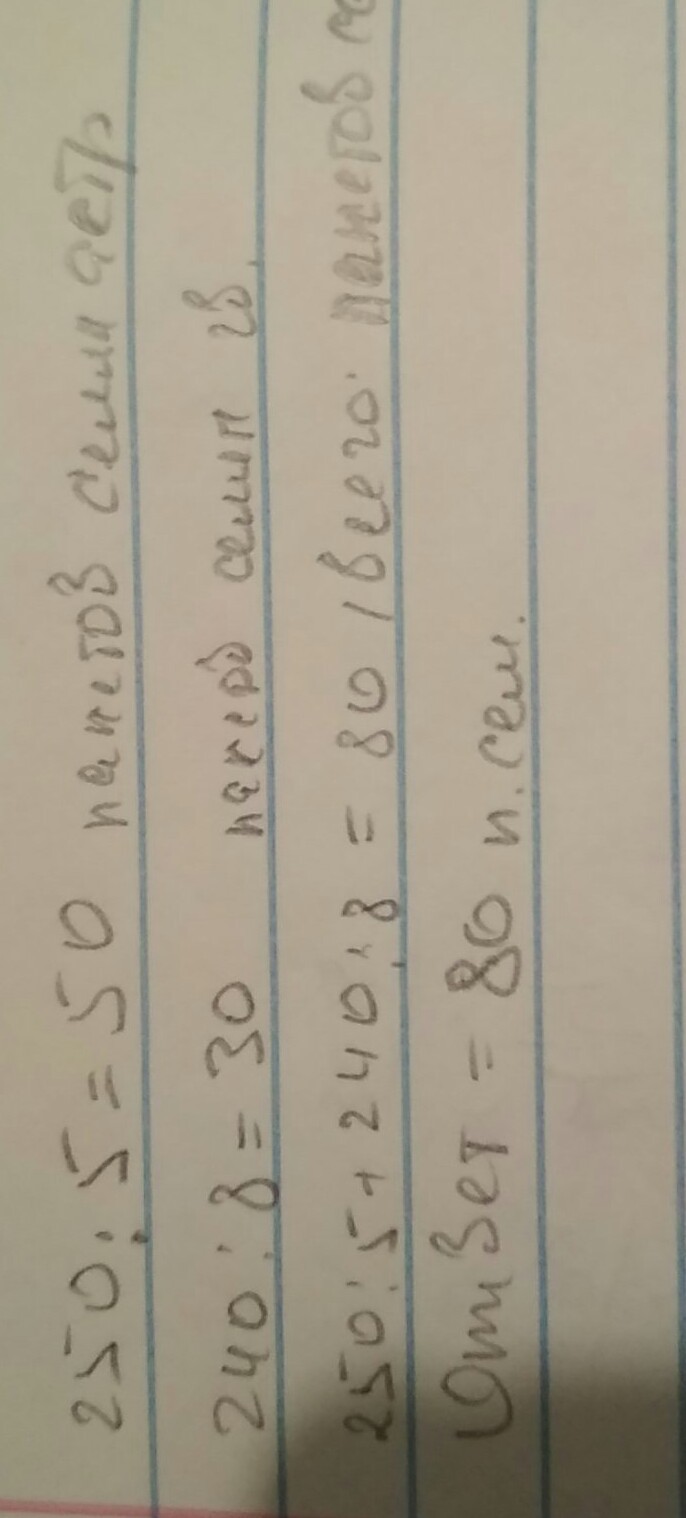 250:5=50 пакетов семян астр
240:8=30 пакетов семян гв.
250:5+240:8=80 /всего пакетов
Ответ = 80 п. сем.